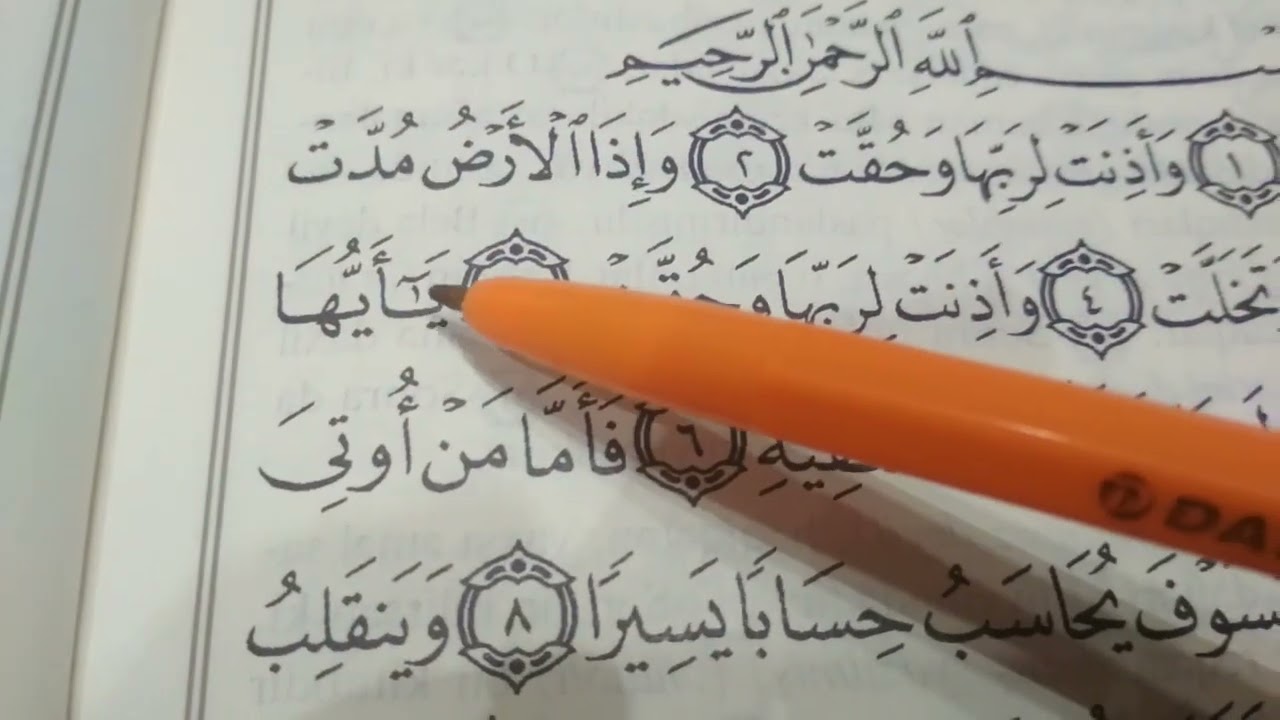 ٱللَّهِ ٱلرَّحْمَٰنِ ٱلرَّحِيمِ
١ وَأَذِنَتْ لِرَبِّهَا وَحُقَّتْ ٢ وَإِذَا ٱلْأَرْضُ مُدَّتْ
وَتَخَلَّتْ ٤ وَأَذِنَتْ لِرَبِّهَا وَحُقَّتْ يَٰٓأَيُّهَا
٦ فَأَمَّا مَنْ أُوتِىَ
فَسَوْفَ يُحَاسَبُ حِسَابًا يَسِيرًا ٨ وَيَنقَلِبُ
DA